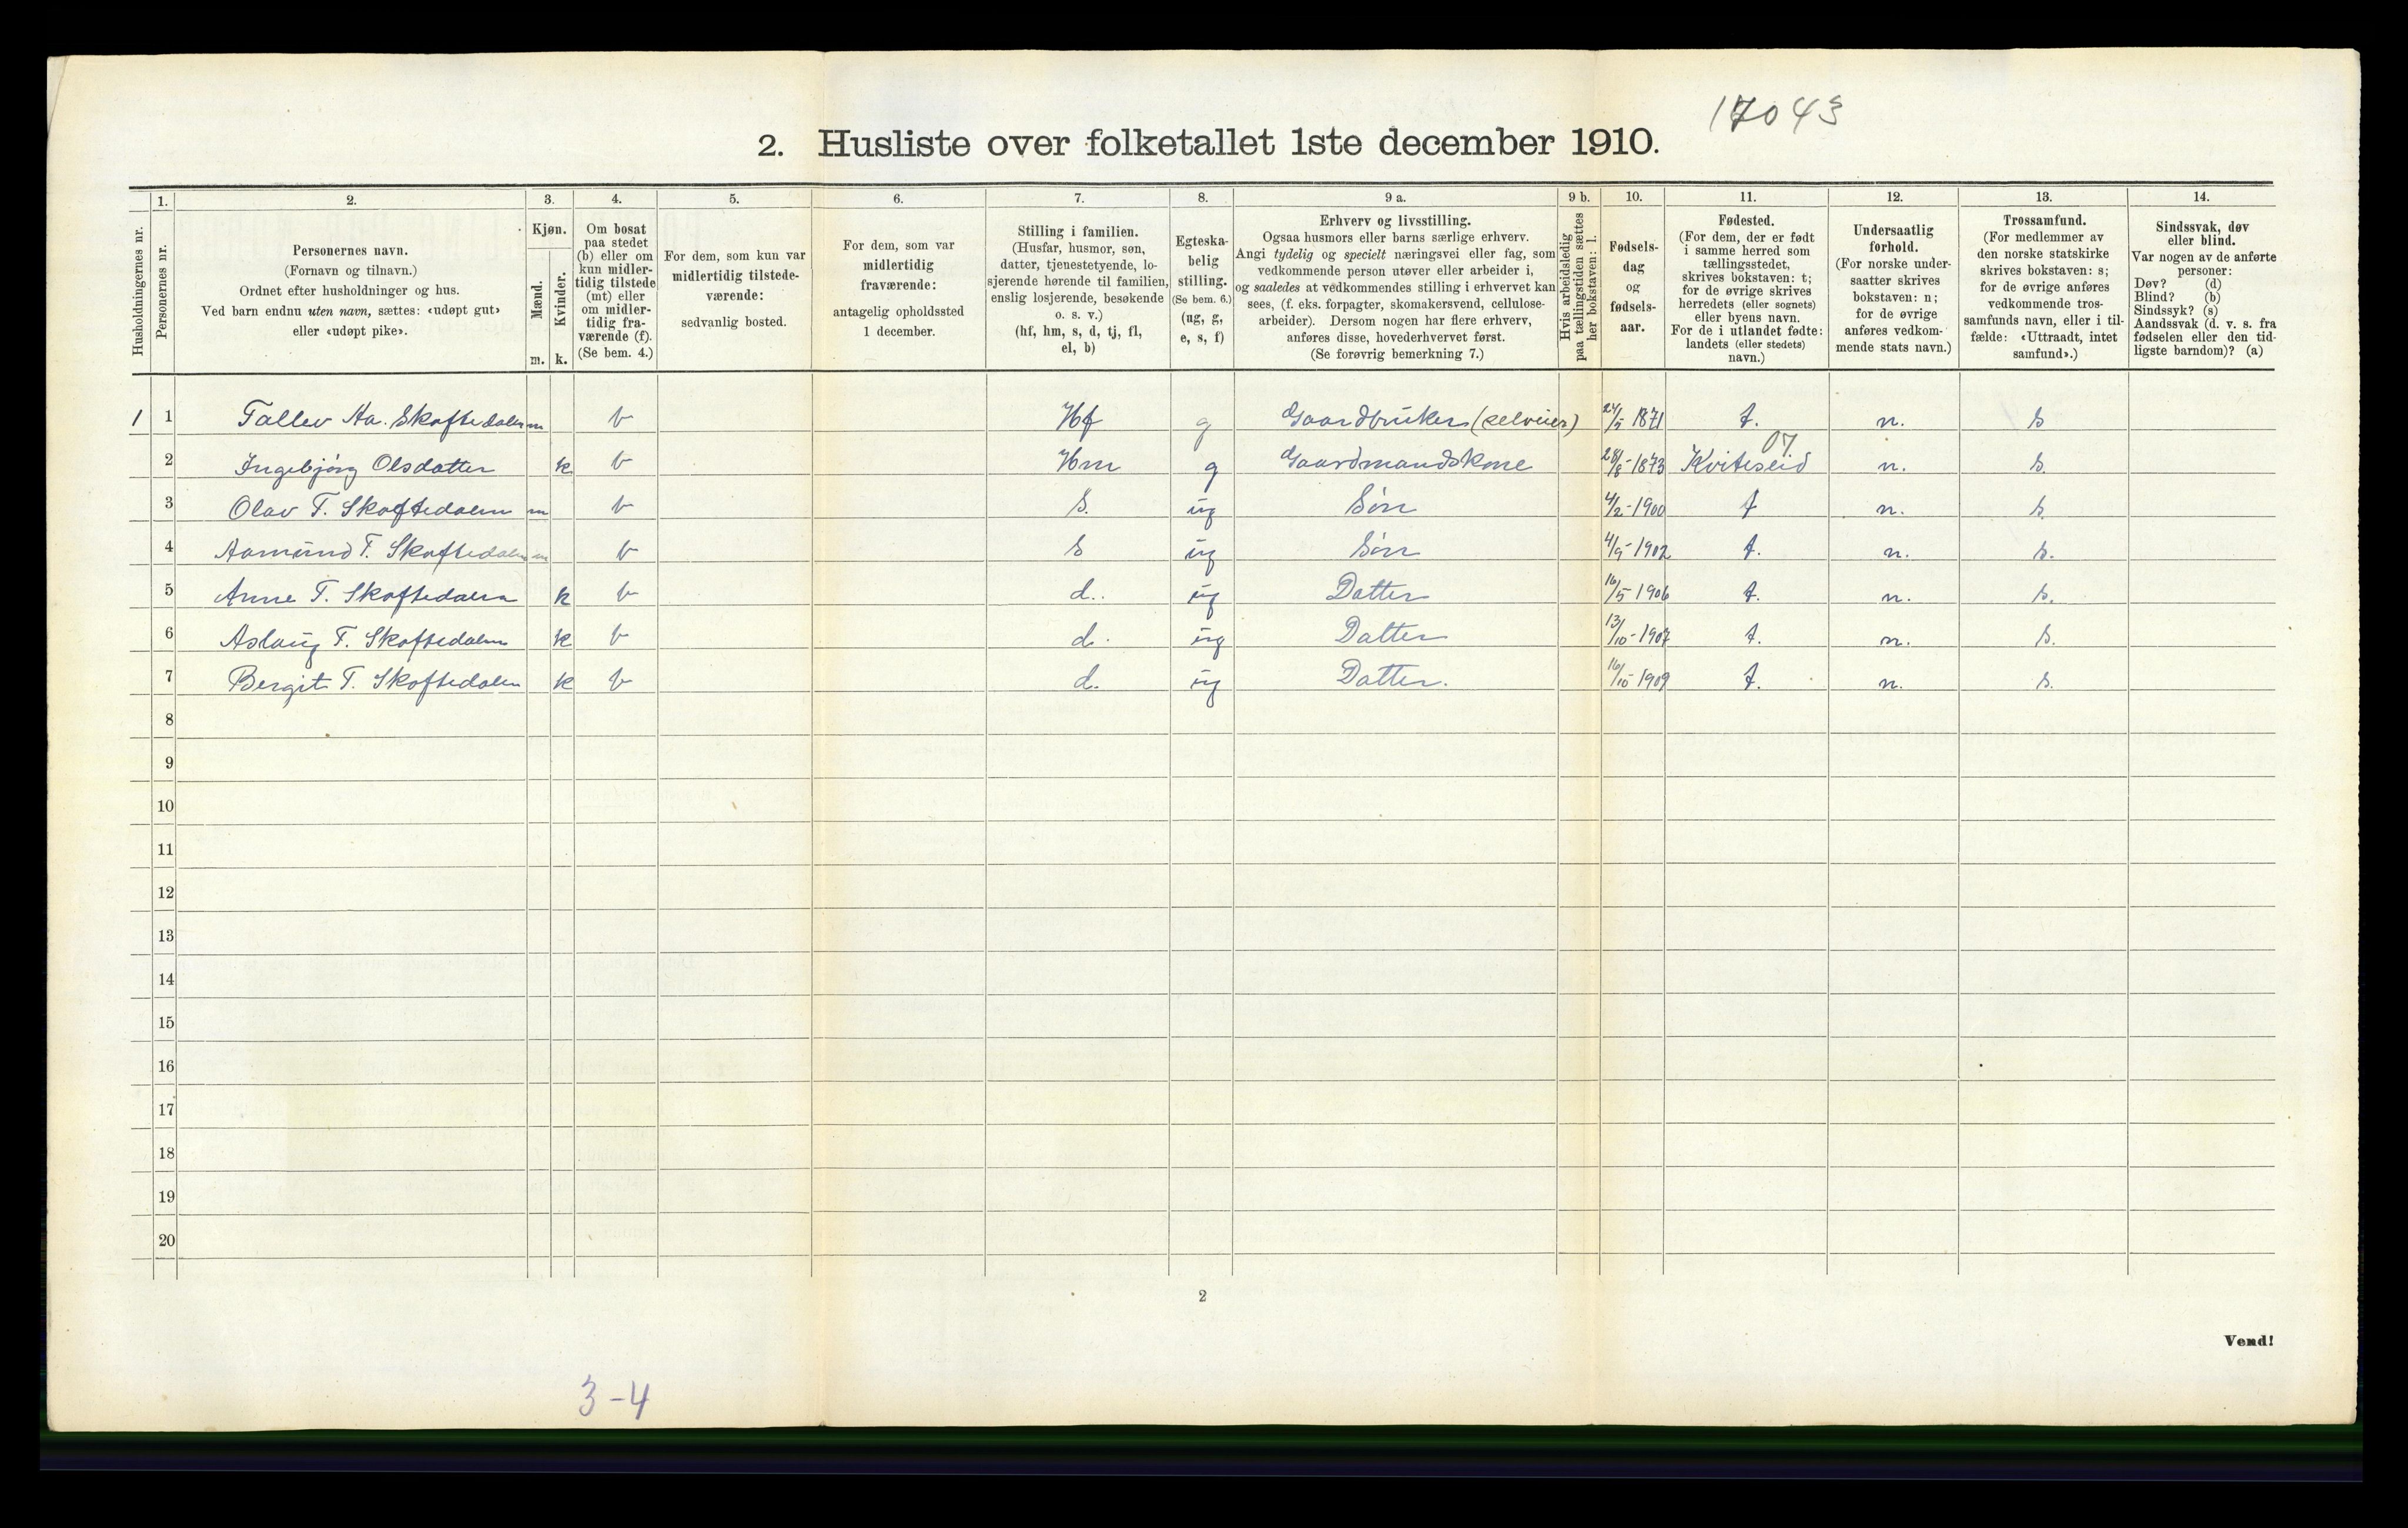 17043
2. Husliste over folketallet 1ste december 1910.
Husholdningernes nr.
1. Personernes nr.
2. Personernes navn.
(Fornavn og tilnavn.)
Ordnet efter husholdninger og hus.
Ved barn endnu uten navn, sættes: «udøpt gut»
eller «udøpt pike».
3. Kjøn.
Mænd. m.
Kvinder. k.
4. Om bosat
paa stedet
(b) eller om
kun midler-
tidig tilstede
(mt) eller
om midler-
tidig fra-
værende (f).
(Se bem. 4.)
5. For dem, som kun var
midlertidig tilstede-
værende:
sedvanlig bosted.
6. For dem, som var
midlertidig
fraværende:
antagelig opholdssted
1 december.
7. Stilling i familien.
(Husfar, husmor, søn,
datter, tjenestetyende, lo-
sjerende hørende til familien,
enslig losjerende, besøkende
o. s. v.)
(hf, hm, s, d, tj, fl,
el, b)
8. Egteska-
belig
stilling.
(Se bem. 6.)
(ug, g,
e, s, f)
9 a. Erhverv og livsstilling.
Ogsaa husmors eller barns særlige erhverv.
Angi tydelig og specielt næringsvei eller fag, som
vedkommende person utøver eller arbeider i,
og saaledes at vedkommendes stilling i erhvervet kan
sees, (f. eks. forpagter, skomakersvend, cellulose-
arbeider). Dersom nogen har flere erhverv,
anføres disse, hovederhvervet først.
(Se forøvrig bemerkning 7.)
9 b. Hvis arbeidsledig
paa tællingstiden sættes
her bokstaven: l.
10. Fødsels-
dag
og
fødsels-
aar.
11. Fødested.
(For dem, der er født
i samme herred som
tællingsstedet,
skrives bokstaven: t;
for de øvrige skrives
herredets (eller sognets)
eller byens navn.
For de i utlandet fødte:
landets (eller stedets)
navn.)
12. Undersaatlig
forhold.
(For norske under-
saatter skrives
bokstaven: n;
for de øvrige
anføres vedkom-
mende stats navn.)
13. Trossamfund.
(For medlemmer av
den norske statskirke
skrives bokstaven: s;
for de øvrige anføres
vedkommende tros-
samfunds navn, eller i til-
fælde: «Uttraadt, intet
samfund».)
14. Sindssvak, døv
eller blind.
Var nogen av de anførte
personer:
Døv? (d)
Blind? (b)
Sindssyk? (s)
Aandssvak (d. v. s. fra
fødselen eller den tid-
ligste barndom)? (a)
1 1 Tallev Aa. Skoftedalen m b Hf g Gaardbruker (selveier) 24/5 1871 t. n. s
07.
2 Ingebjørg Olsdatter k b Hm g Gaardmandskone 28/8-1873 Kviteseid n. s.
3 Olav T. Skoftedalen m b s. ug Søn 4/2-1900 t n. s.
4 Aamund T. Skoftedalen m b s ug Søn 4/9-1902 t. n. s.
5 Anne T. Skoftedalen k b d. ug Datter 16/5 1906 t. n. s.
6 Aslaug T. Skoftedalen k b d. ug Datter 13/10-1907 t. n. s.
7 Bergit T. Skoftedalen k b d. ug Datter. 16/10 1909 t. n. s.
8
9
10
11
12
13
14
15
16
17
18
19
20
2
Vend!
3-4